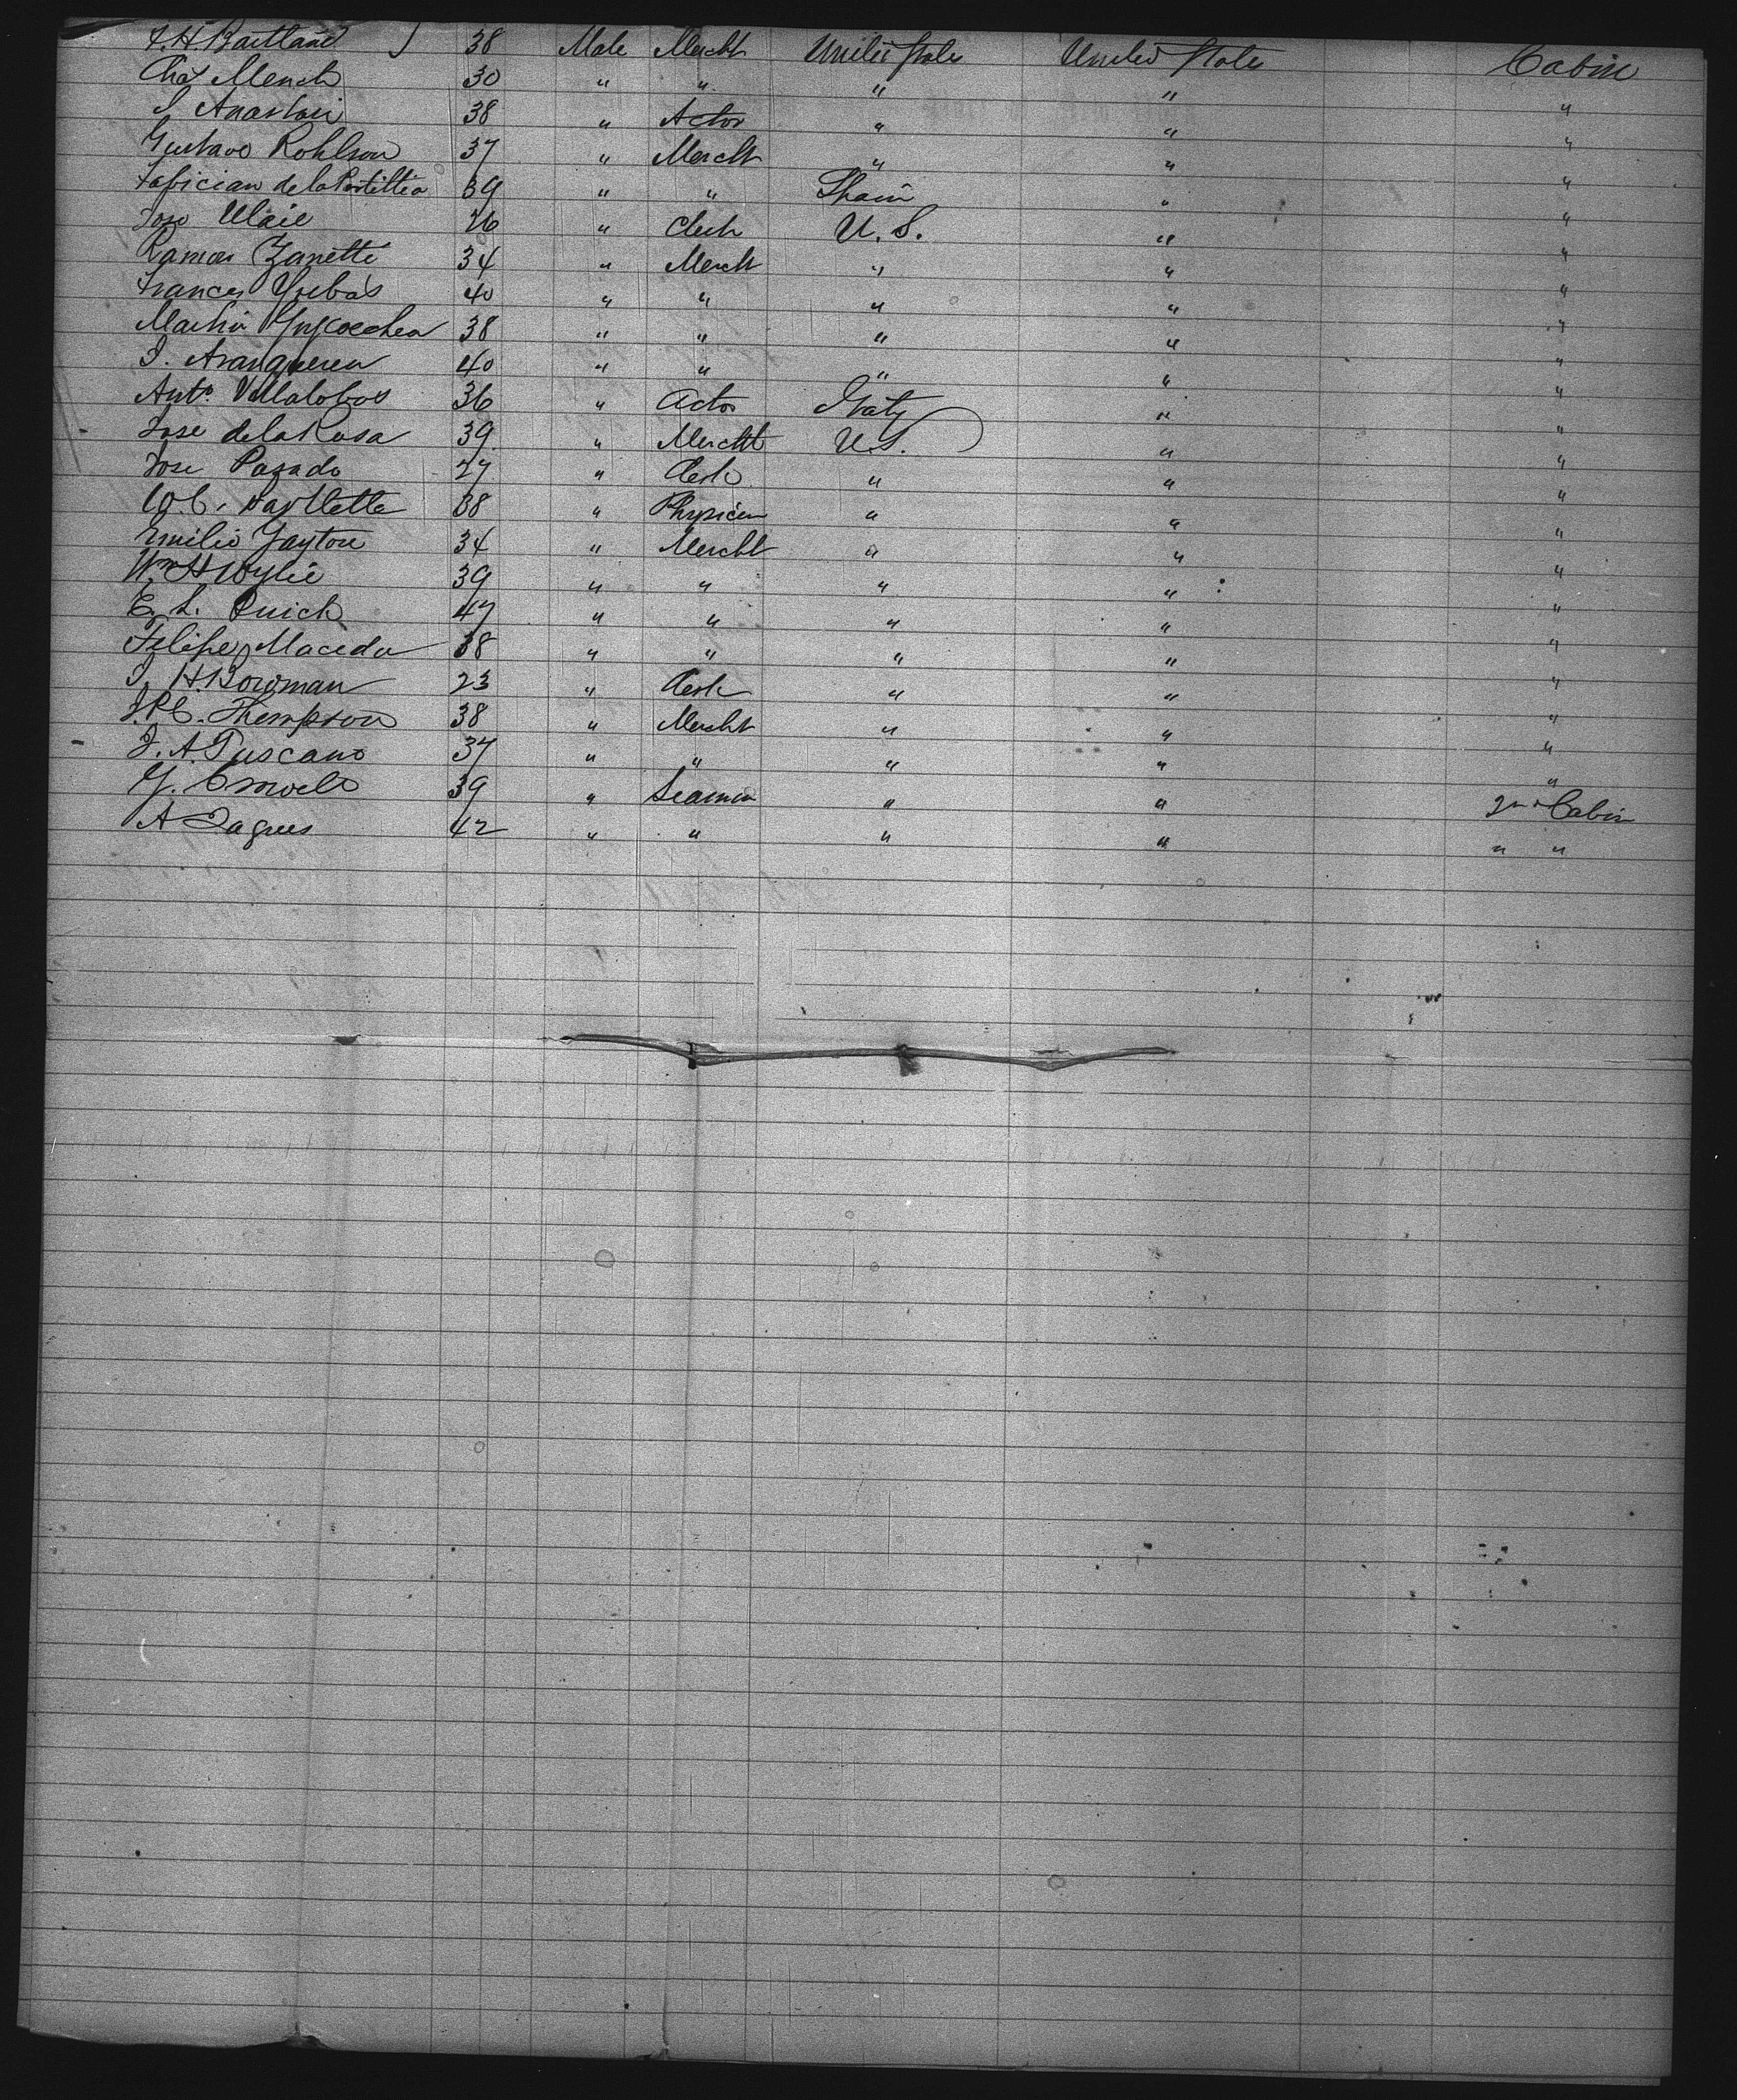 F. H. Bartland 38 Male Mercht United States United States Cabin
Chas Mench 30 " " " " "
S Anastasi 38 " Actor " " "
Gustavo Rohlson 37 " Mercht " " "
de la Portillia 39 " " Spain " "
Jose 26 " Clerk U. S. " "
Ramon Zanetti 34 " Mercht " " "
Frances Yrebas 40 " " " " "
Martin Goycoechea 38 " " " " "
J. Aranguren 40 " " " " "
Anto Villalobos 36 " Actor Italy " "
Jose de la Rosa 39 " Mercht U.S. " "
Jose Pasado 27 " Clerk " " "
W. C. Bartlette 38 " Physicien " " "
Emilio Gayton 34 " Mercht " " "
Wm H Wylie 39 " " " " "
E. L. Quick 47 " " " " "
Felipe Maceda 38 " " " " "
J. H. Bowman 23 " Clerk " " "
J. P. C. Thempson 38 " Mercht " " "
J. A. Tuscano 37 " " " " "
G. 39 " Seaman " " 2nd Cabin
A Zagrees 42 " " " " " "